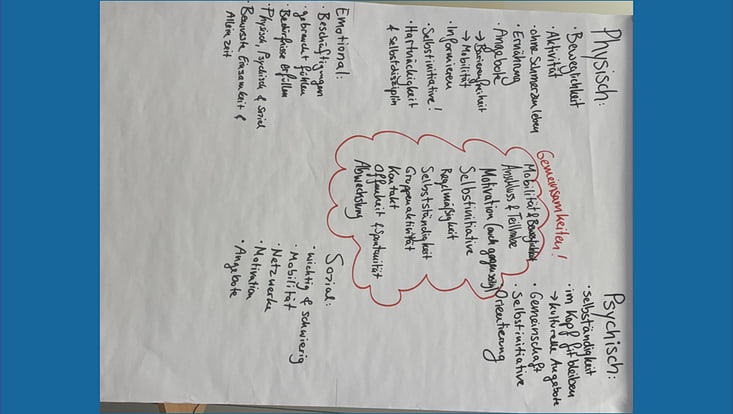 Physisch:
· Beweglichkeit
· Aktivität
· ohne Schmerzen leben
· Ernährung
· Angebote
→ Barierefreiheit
→ Mobilität
· Informieren
· Selbstinitiative!
· Hartnäckigkeit
& selbstdisziplin
Psychisch:
· selbständigkeit
· im Kopf fit bleiben
→ kulturelle Angebote
· Gemeinschaft
· Selbstinitiative
Gemeinsamkeiten!
Mobilität & Beweglichkeit
Anschluss & Teilhabe
Motivation (auch gegenseitig)
Orientierung
Selbstinitiative
Regelmäßigkeit
Selbstständigkeit
Gruppenaktivität
Kontakt
Offenheit & Spontanität
Abwechslung
Emotional:
· Beschäftigungen
· gebraucht fühlen
· Bedürfnisse erfüllen
· Physisch, Psychisch & Sozial
· Bewusste Einsamkeit &
Allein zeit
Sozial:
· wichtig & schwierig
· Mobilität
· Netzwerke
· Motivation
· Angebote